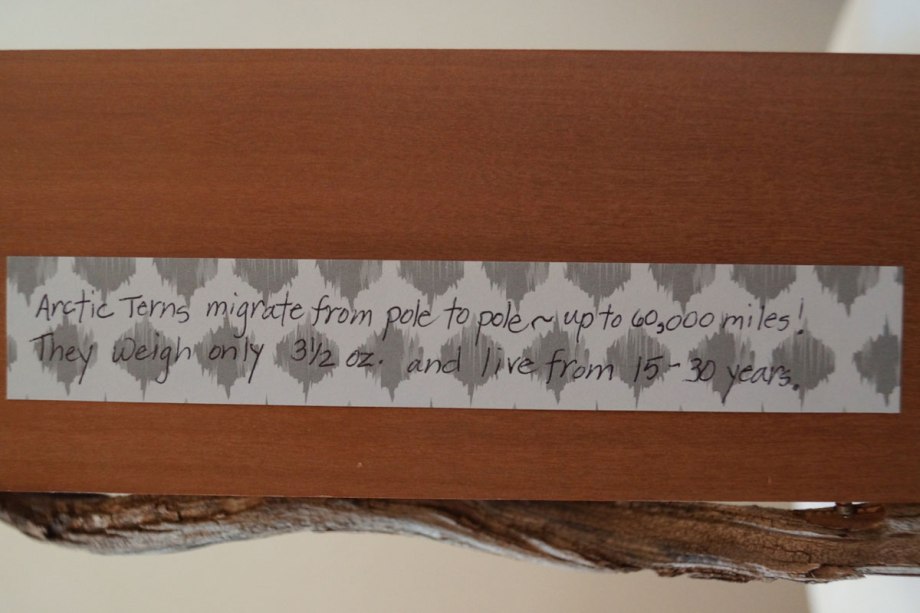 Arctic Terns migrate from pole to pole ~ up to 60,000 miles!
They weigh only 3½ oz. and live from 15-30 years.